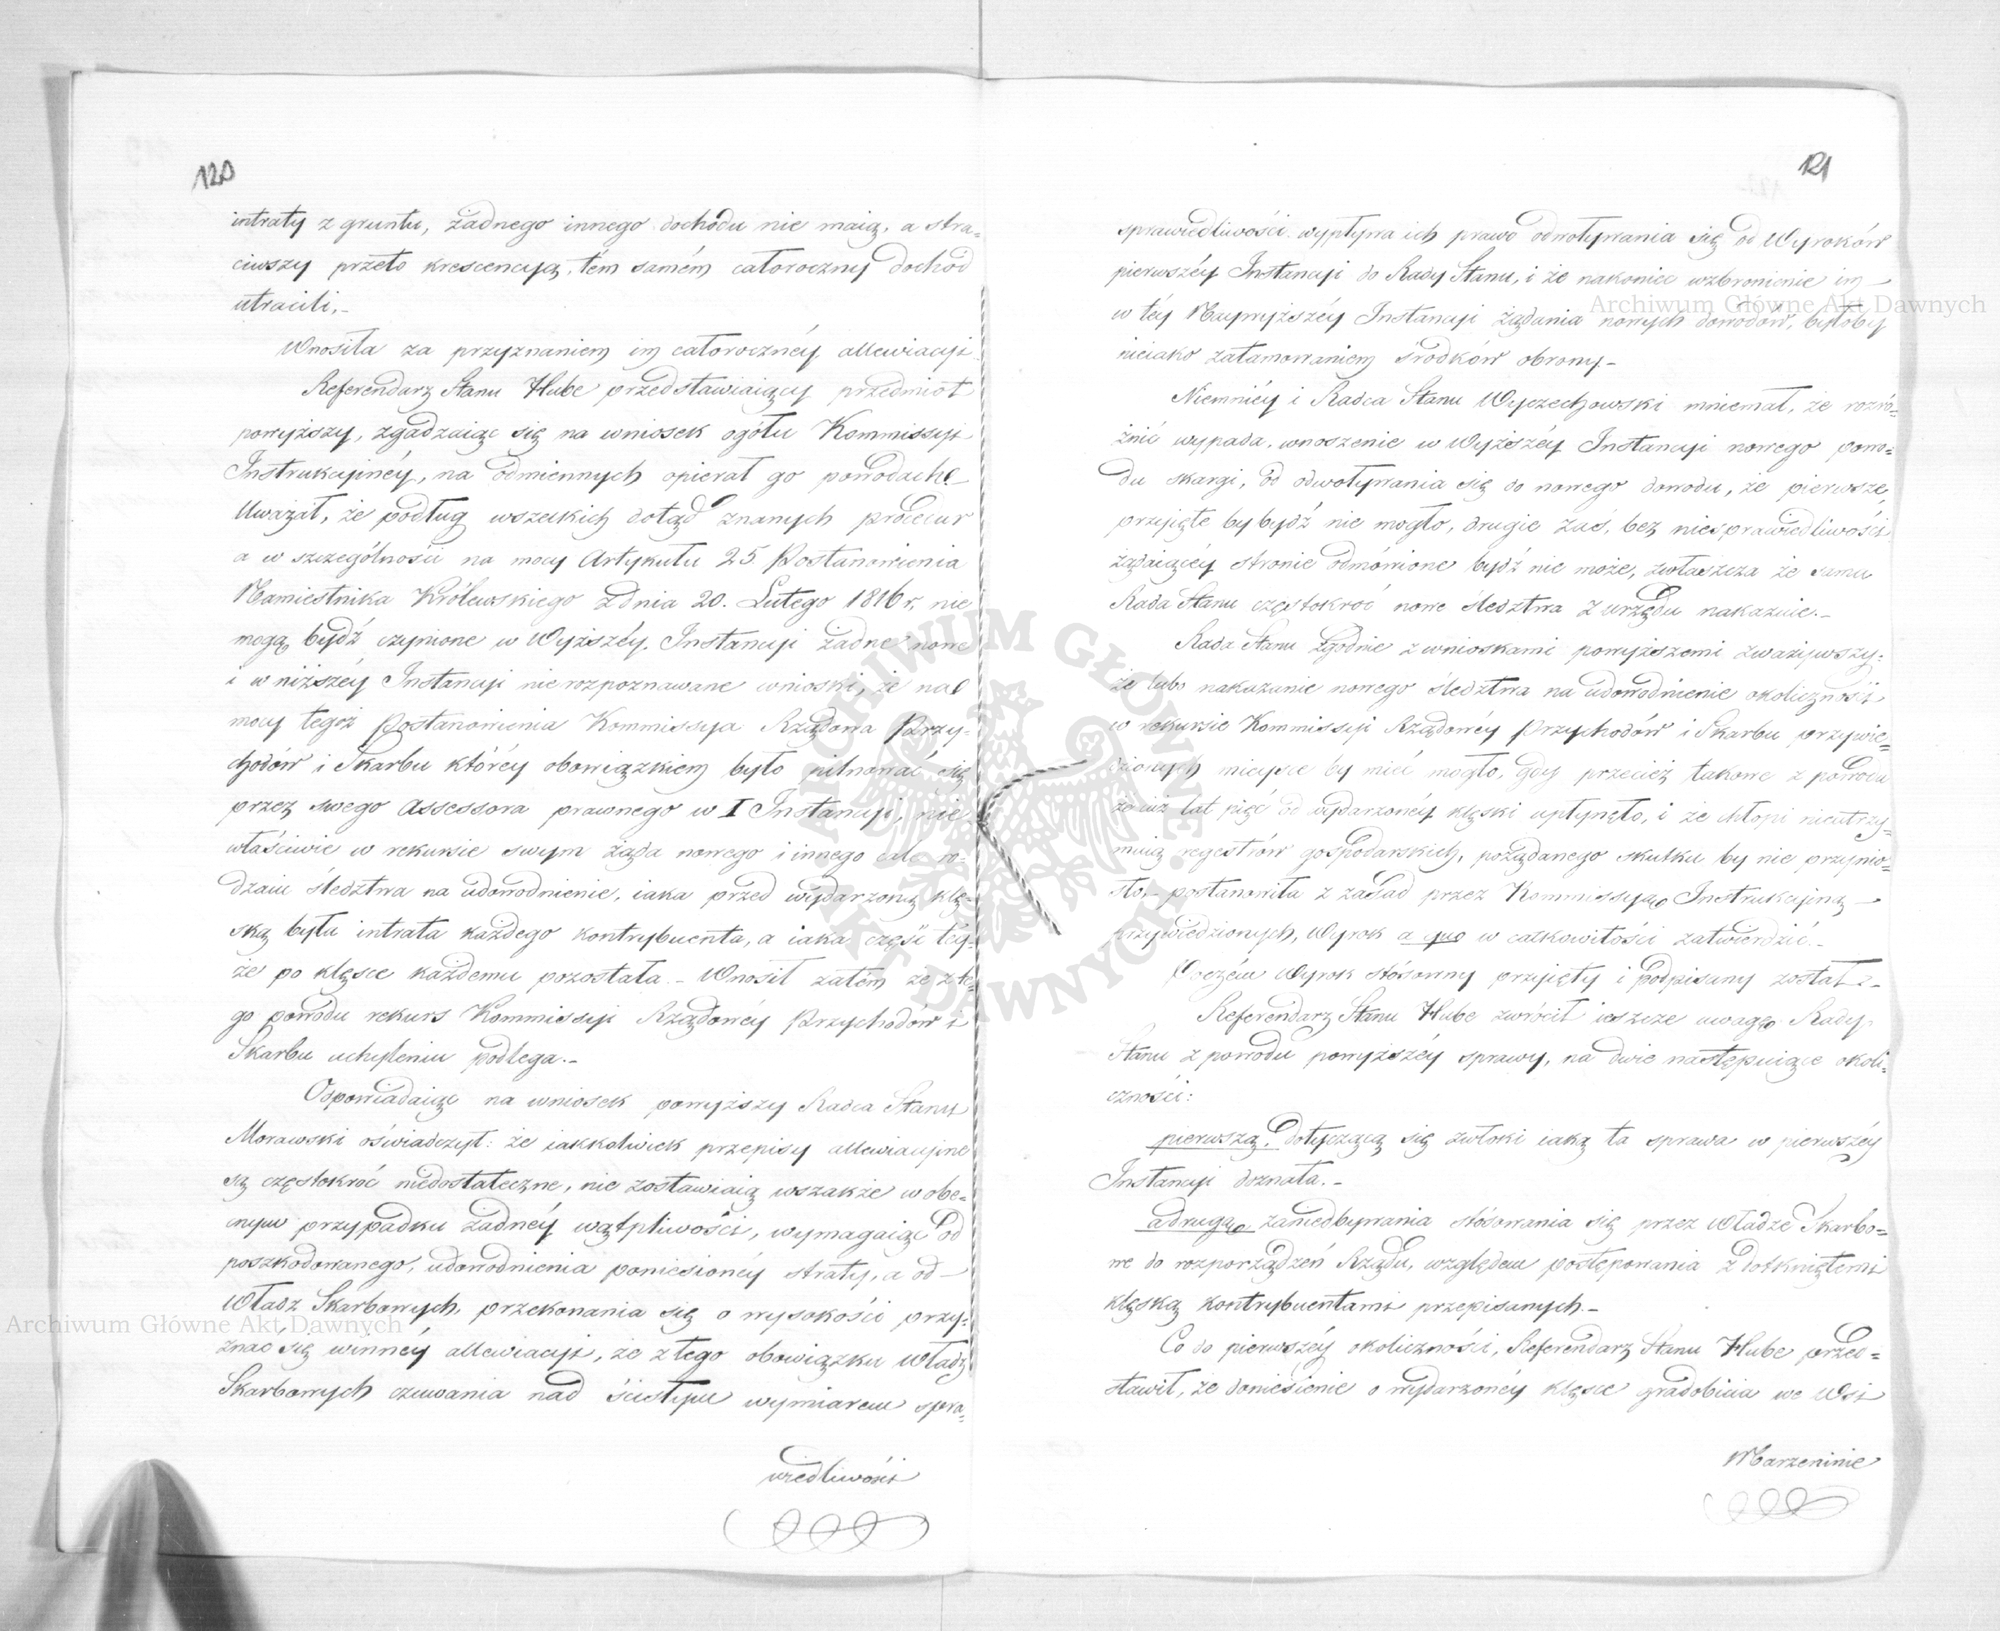 120
intraty z gruntu, żadnego innego dochodu nie maią, a stra-
ciwszy przeto krescencyą, tém samém całoroczny dochód
utracili.-
Wnosiła za przyznaniem im całorocznéy allewiacyi.
Referendarz Stanu Hube przedstawiaiący przedmiot
powyższy, zgadzaiąc się na wniosek ogółu Kommissyi
Instrukcyinéy, na odmiennych opierał go powodach.
Uważał, że podług wszelkich dotąd znanych procedur
a w szczególności na mocy Artykułu 25 Postanowienia
Namiestnika Królewskiego z dnia 20. Lutego 1816 r. nie
mogą bydź czynione w Wyższéy Instancyi żadne nowe
i w niższéy Instancyi nierozpoznawane wnioski, że na
mocy tegoż Postanowienia Kommissya Rządowa Przy-
chodów i Skarbu któréy obowiązkiem było pilnować się
przez swego Assessora prawnego w I Instancyi, nie
właściwie w rekursie swym żąda nowego i innego całe ro-
dzaiu śledztwa na udowodnienie, iaka przed wydarzoną klę-
ską była intrata każdego kontrybuenta, a iaka część téy-
że po klęsce każdemu pozostała.- Wnosił zatém że z te-
go powodu rekurs Kommissyi Rządowéy Przychodów i
Skarbu uchyleniu podlega.-
Odpowiadaiąc na wniosek powyższy Radca Stanu
Morawski oświadczył: że iakkolwiek przepisy allewiacyine
są częstokroć niedostateczne, nie zostawiaią wszakże w obe-
cnym przypadku żadnéy wątpliwości, wymagaiąc od
poszkodowanego, udowodnienia poniesionéy straty, a od
Władz Skarbowych, przekonania się o wysokości przy-
znać się winnéy allewiacyi, że z tego obowiązku Władz
Skarbowych czuwania nad ścisłym wymiarem spra-
wiedliwości
121
sprawiedliwości wypływa ich prawo odwoływania się od Wyroków
pierwszéy Instancyi do Rady Stanu, i że nakoniec wzbronienie im
w téy Naywyższéy Instancyi żądania nowych dowodów, byłoby
nieiako zatamowaniem środków obrony.-
Niemniéy i Radca Stanu Wyczechowski mniemał, że rozró-
żnić wypada, wnoszenie w Wyższéy Instancyi nowego powo-
du skargi, od odwoływania się do nowego dowodu, że pierwsze,
przyięte by bydź nie mogło, drugie zaś, bez niesprawiedliwości
żądaiącéy stronie odmówione bydź nie może, zwłaszcza że sama
Rada Stanu częstokroć nowe śledztwa z urzędu nakazuie.-
Rada Stanu zgodnie z wnioskami powyższemi zważywszy:
że lubo nakazanie nowego śledztwa na udowodnienie okoliczności
w rekursie Kommissyi Rządowéy Przychodów i Skarbu przywie-
dzionych mieysce by mieć mogło, gdy przecież takowe z powodu
że iuż lat pięć od wydarzonéy klęski upłynęło, i że chłopi nieutrzy-
muią regestrów gospodarskich, pożądanego skutku by nie przynio-
sło,- postanowiła z zasad przez Kommissyą Instrukcyiną
przywiedzionych, Wyrok a quo w całkowitości zatwierdzić.-
Poczém Wyrok stósowny przyięty i podpisany został.-
Referendarz Stanu Hube zwrócił ieszcze uwagę Rady
Stanu z powodu powyższéy sprawy, na dwie następuiące okoli-
czności:
pierwszą, dotyczącą się zwłoki iaką ta sprawa w pierwszéy
Instancyi doznała.-
a drugą zaniedbywania stósowania się przez Władze Skarbo-
we do rozporządzeń Rządu, względem postępowania z dotkniętemi
klęską kontrybuentami przepisanych.-
Co do pierwszéy okoliczności, Referendarz Stanu Hube przed-
stawił, że doniesienie o wydarzonéy klęsce gradobicia we Wsi
Marzeninie
Archiwum Główne Akt Dawnych
Archiwum Główne Akt Dawnych
ARCHIWUM GŁÓWNE AKT DAWNYCH